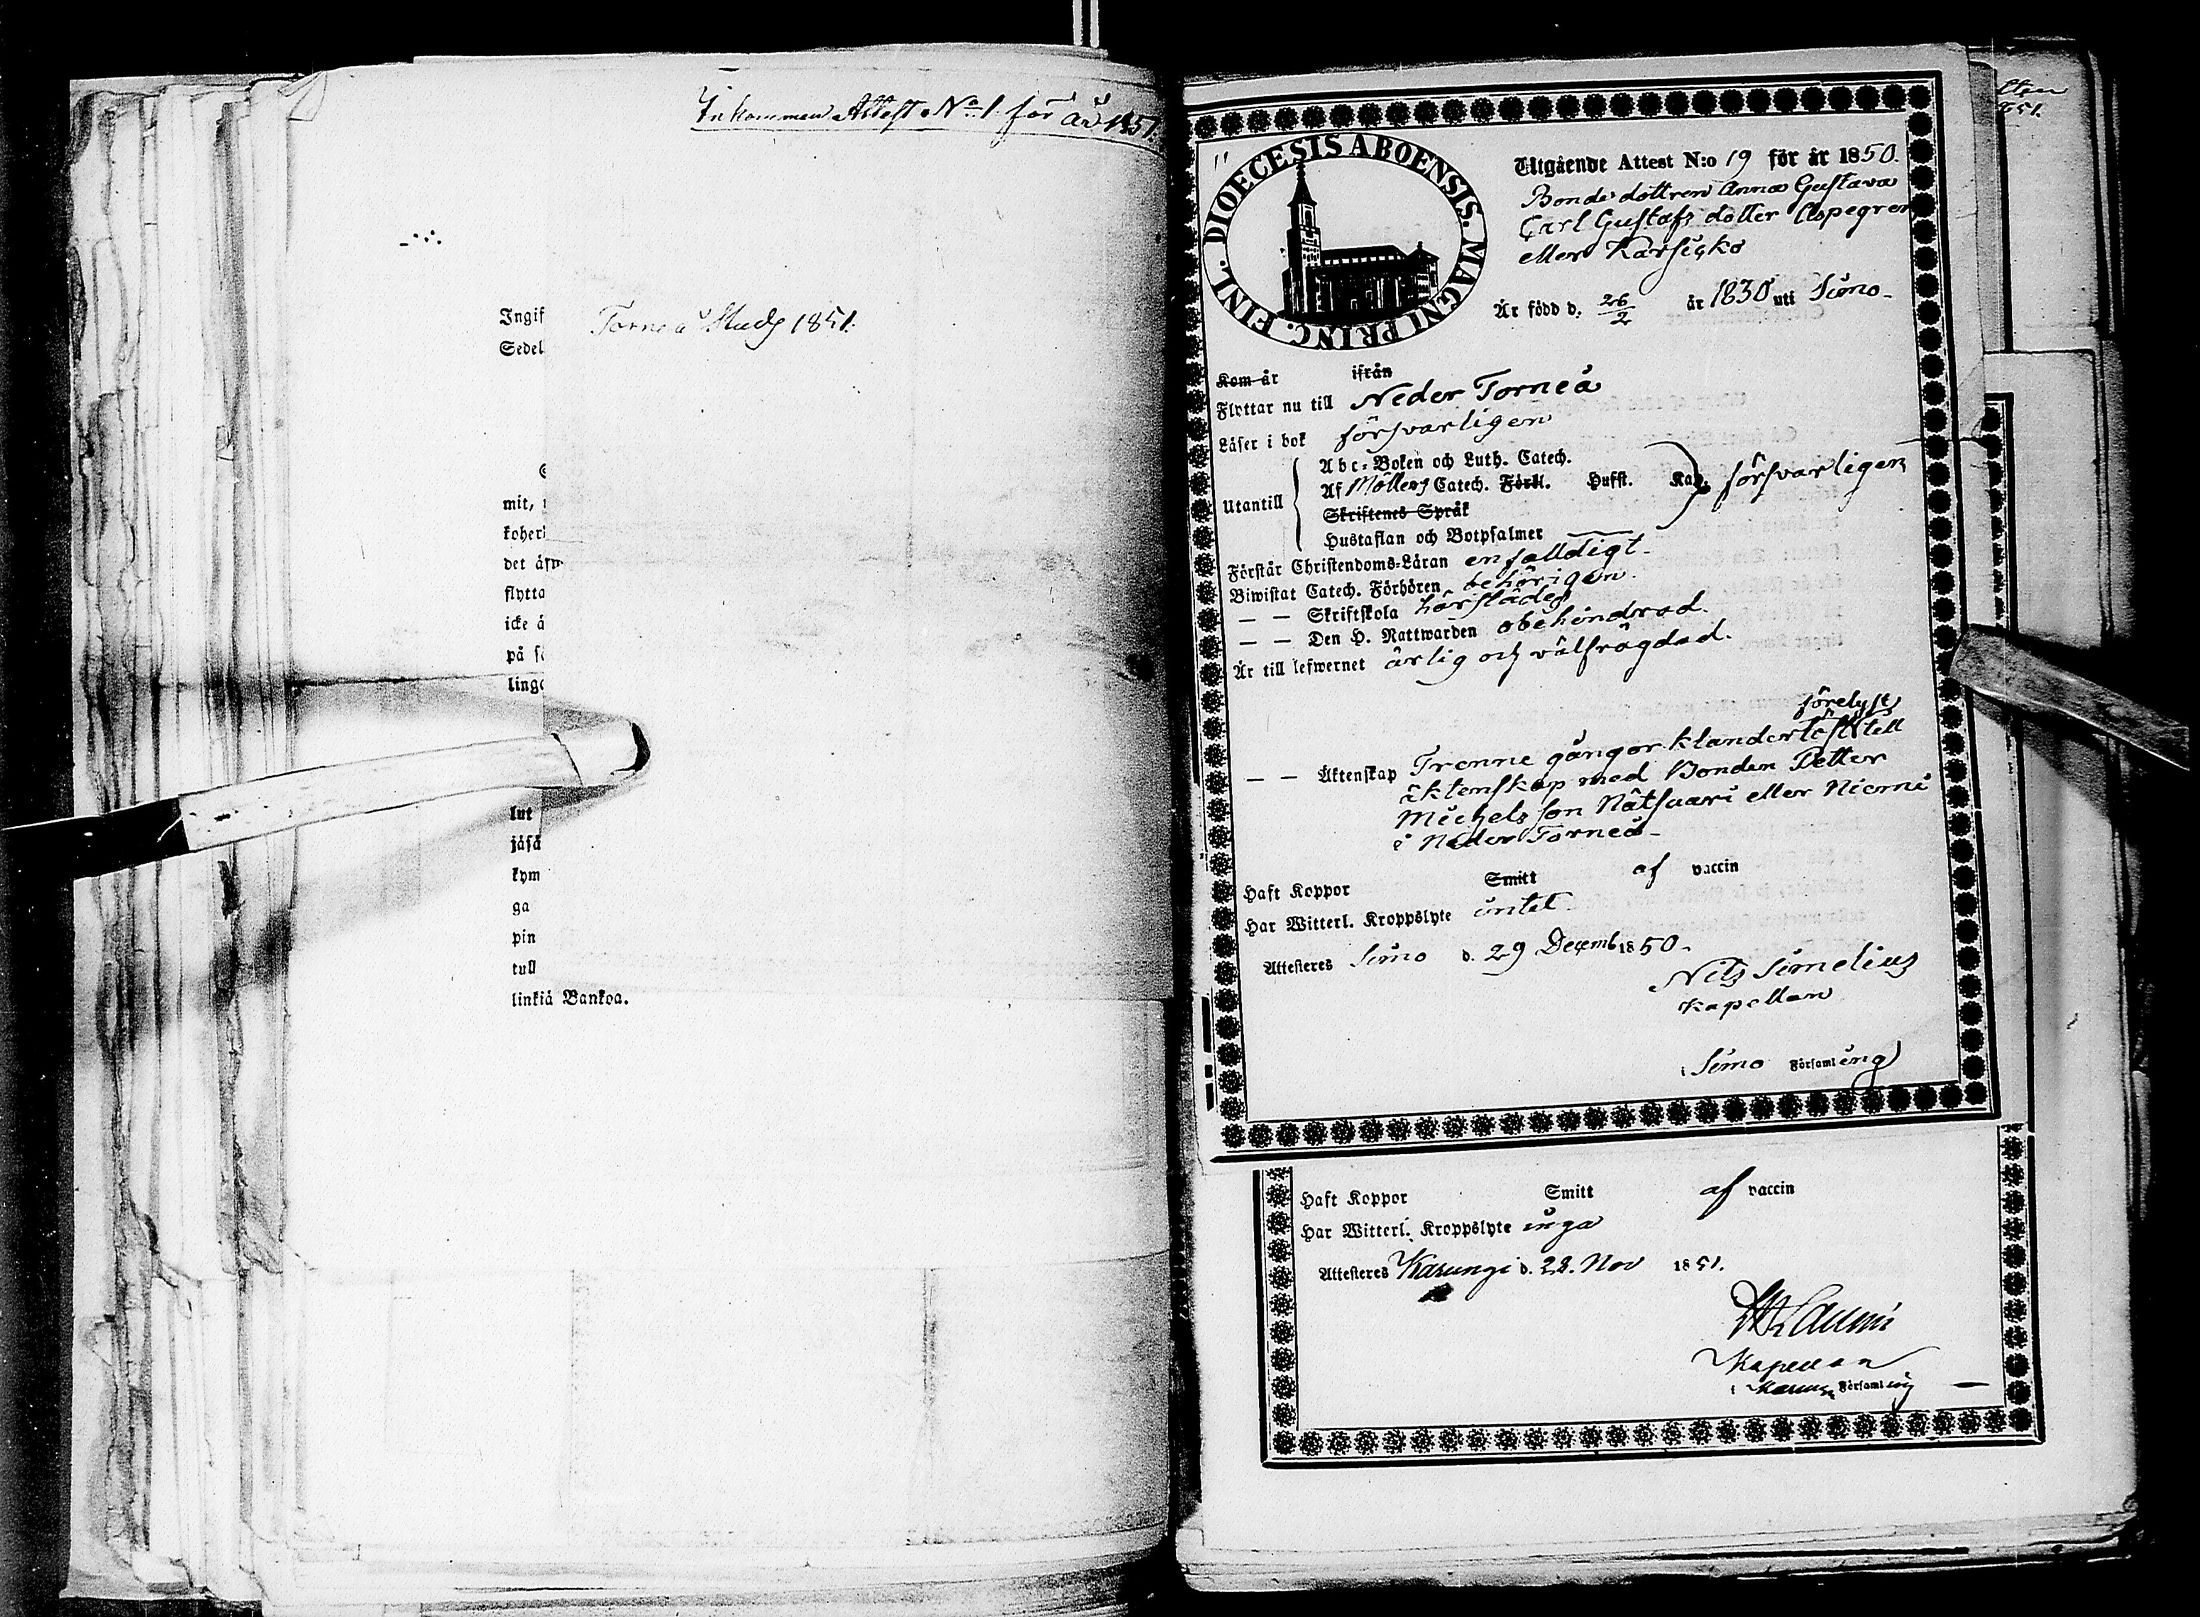 Inkommen Attest No 1. för år 1851.
Ingif
Torneå Stads 1851.
Sedel
mit,
koheri
det äfw
flytta
icke ä
på
linga
lut
jäfä
kym
ga
pin
tull
linkiä Bankoa.
DIOECESIS ABOENSIS. MAGNI PRINC. FINL.
Utgående Attest N:o 19 för år 1850.
Bondedottren Anna Gustava
Carl Gustafs dotter Aspegren
eller Karsicko
Är född d. 26/2 år 1830 uti Simo
Kom år ifrån
Flyttar nu till Neder Torneå
Läser i bok försvarligen
Utantill
Abc-Boken och Luth. Catech.
Af Möllers Catech. Förkl. Hufst. Kap. försvarligen
Skriftenes Språk
Hustaflan och Botpsalmer
Förstår Christendoms-Läran enfalldigt
Biwistat Catech. Förhören behörigen.
— — Skriftskola härstädes
— — Den H. Nattwarden obehindrad.
Är till lefwernet ärlig och välfrägdad.
förelyst
— — Äktenskap Trenne gånger klanderlöst till
äktenskap med Bonden Petter
Michels son Nätsaari eller Niemi
i Neder Torneå
Haft Koppor Smitt af vaccin
Har Witterl. Kroppslyte intet
Attesteres Simo d. 29 Decemb 1850.
Nils Simelius
Kapellan
i Simo Församling
Haft Koppor Smitt af vaccin
Har Witterl. Kroppslyte inga
Attesteres Karungi d. 28. Nov 1851.
Kapellan
i Karungi Församling
851.